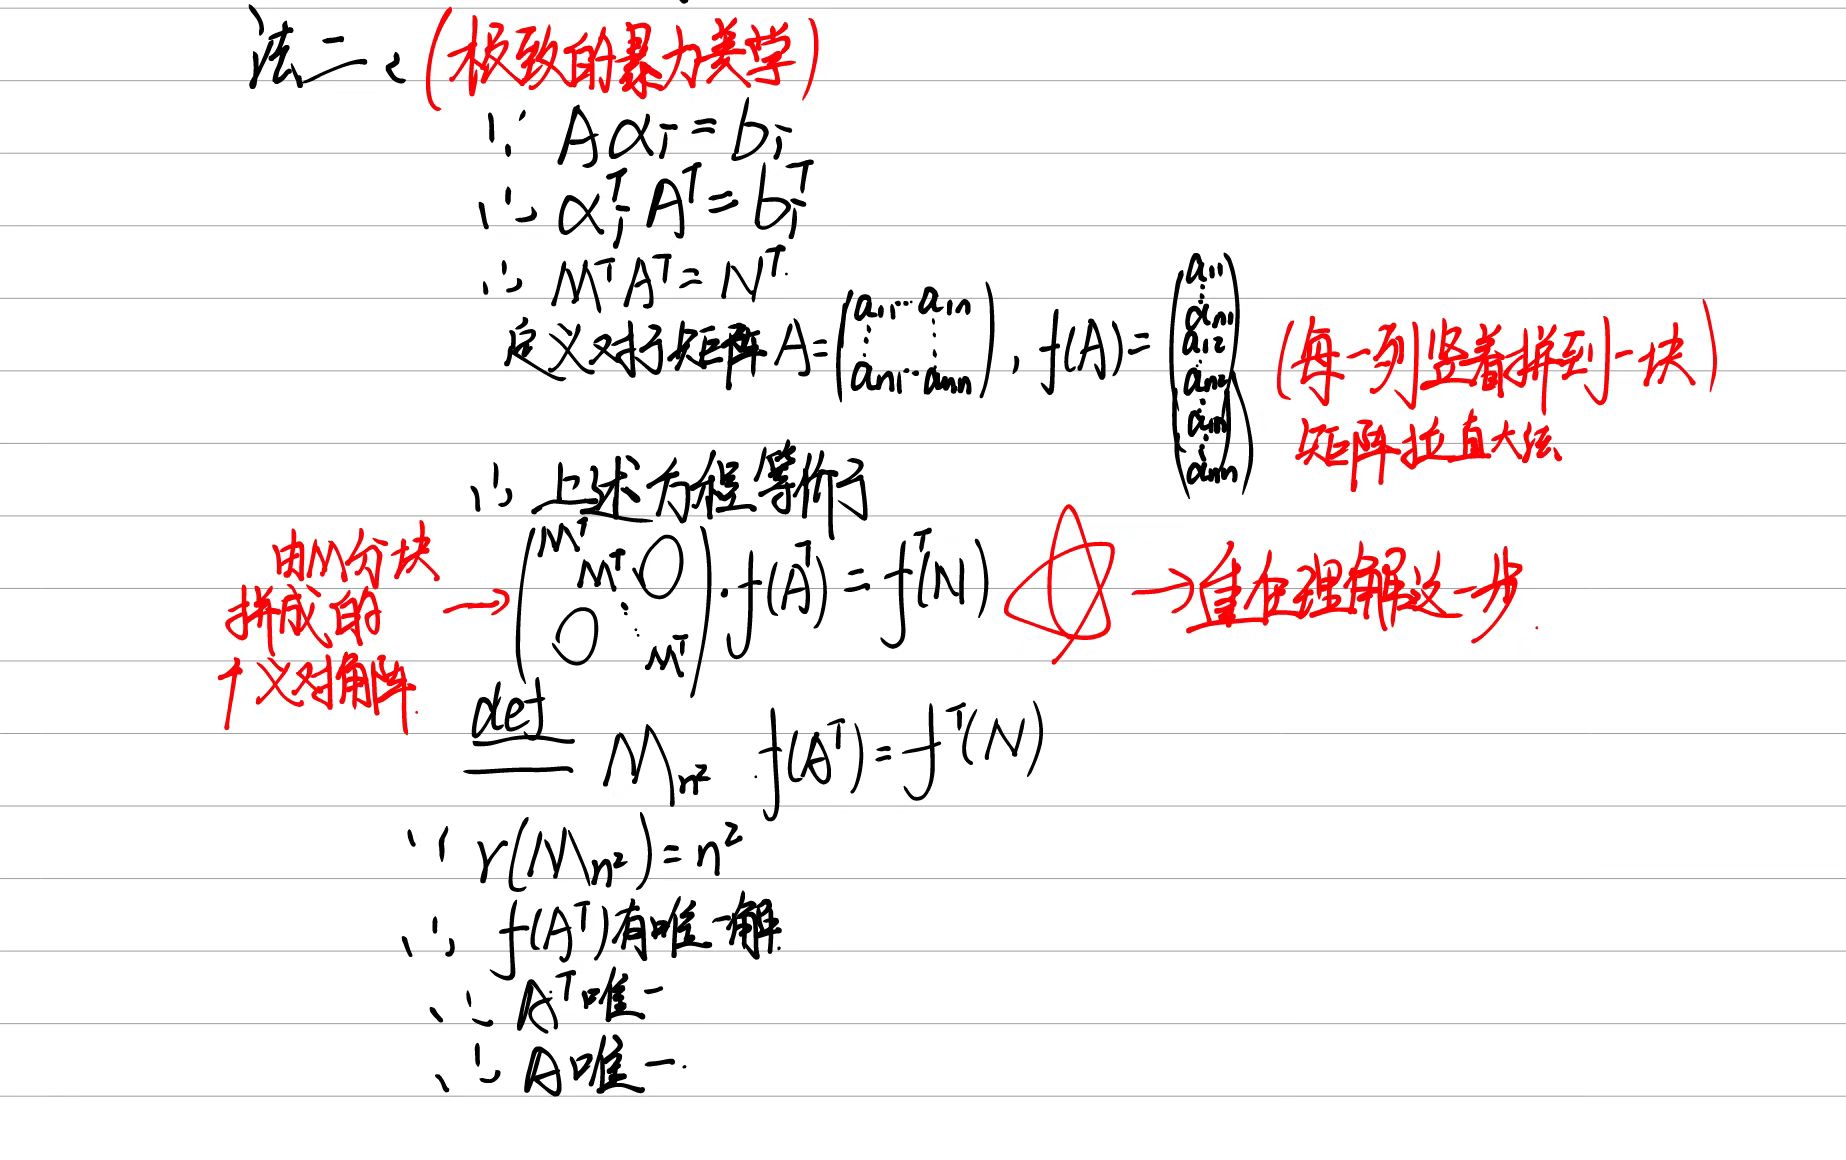 法二:(极致的暴力美学)
∵ Aαi = bi
∴ αi^T A^T = bi^T
∴ M^T A^T = N^T
定义对于矩阵A = (a11 … a1n ⋮ ⋮ an1 … ann), f(A) = (a11 ⋮ an1 a12 ⋮ an2 ⋮ a1n ⋮ ann) (每一列竖着拼到一块)
矩阵拉直大法
∴ 上述方程等价于
由M分块拼成的广义对角阵 → (M^T M^T O O ⋱ M^T) · f(A^T) = f^T(N) → 重在理解这一步.
def M_{n²} · f(A^T) = f^T(N)
∵ r(M_{n²}) = n²
∴ f(A^T)有唯一解
∴ A^T唯一
∴ A唯一.